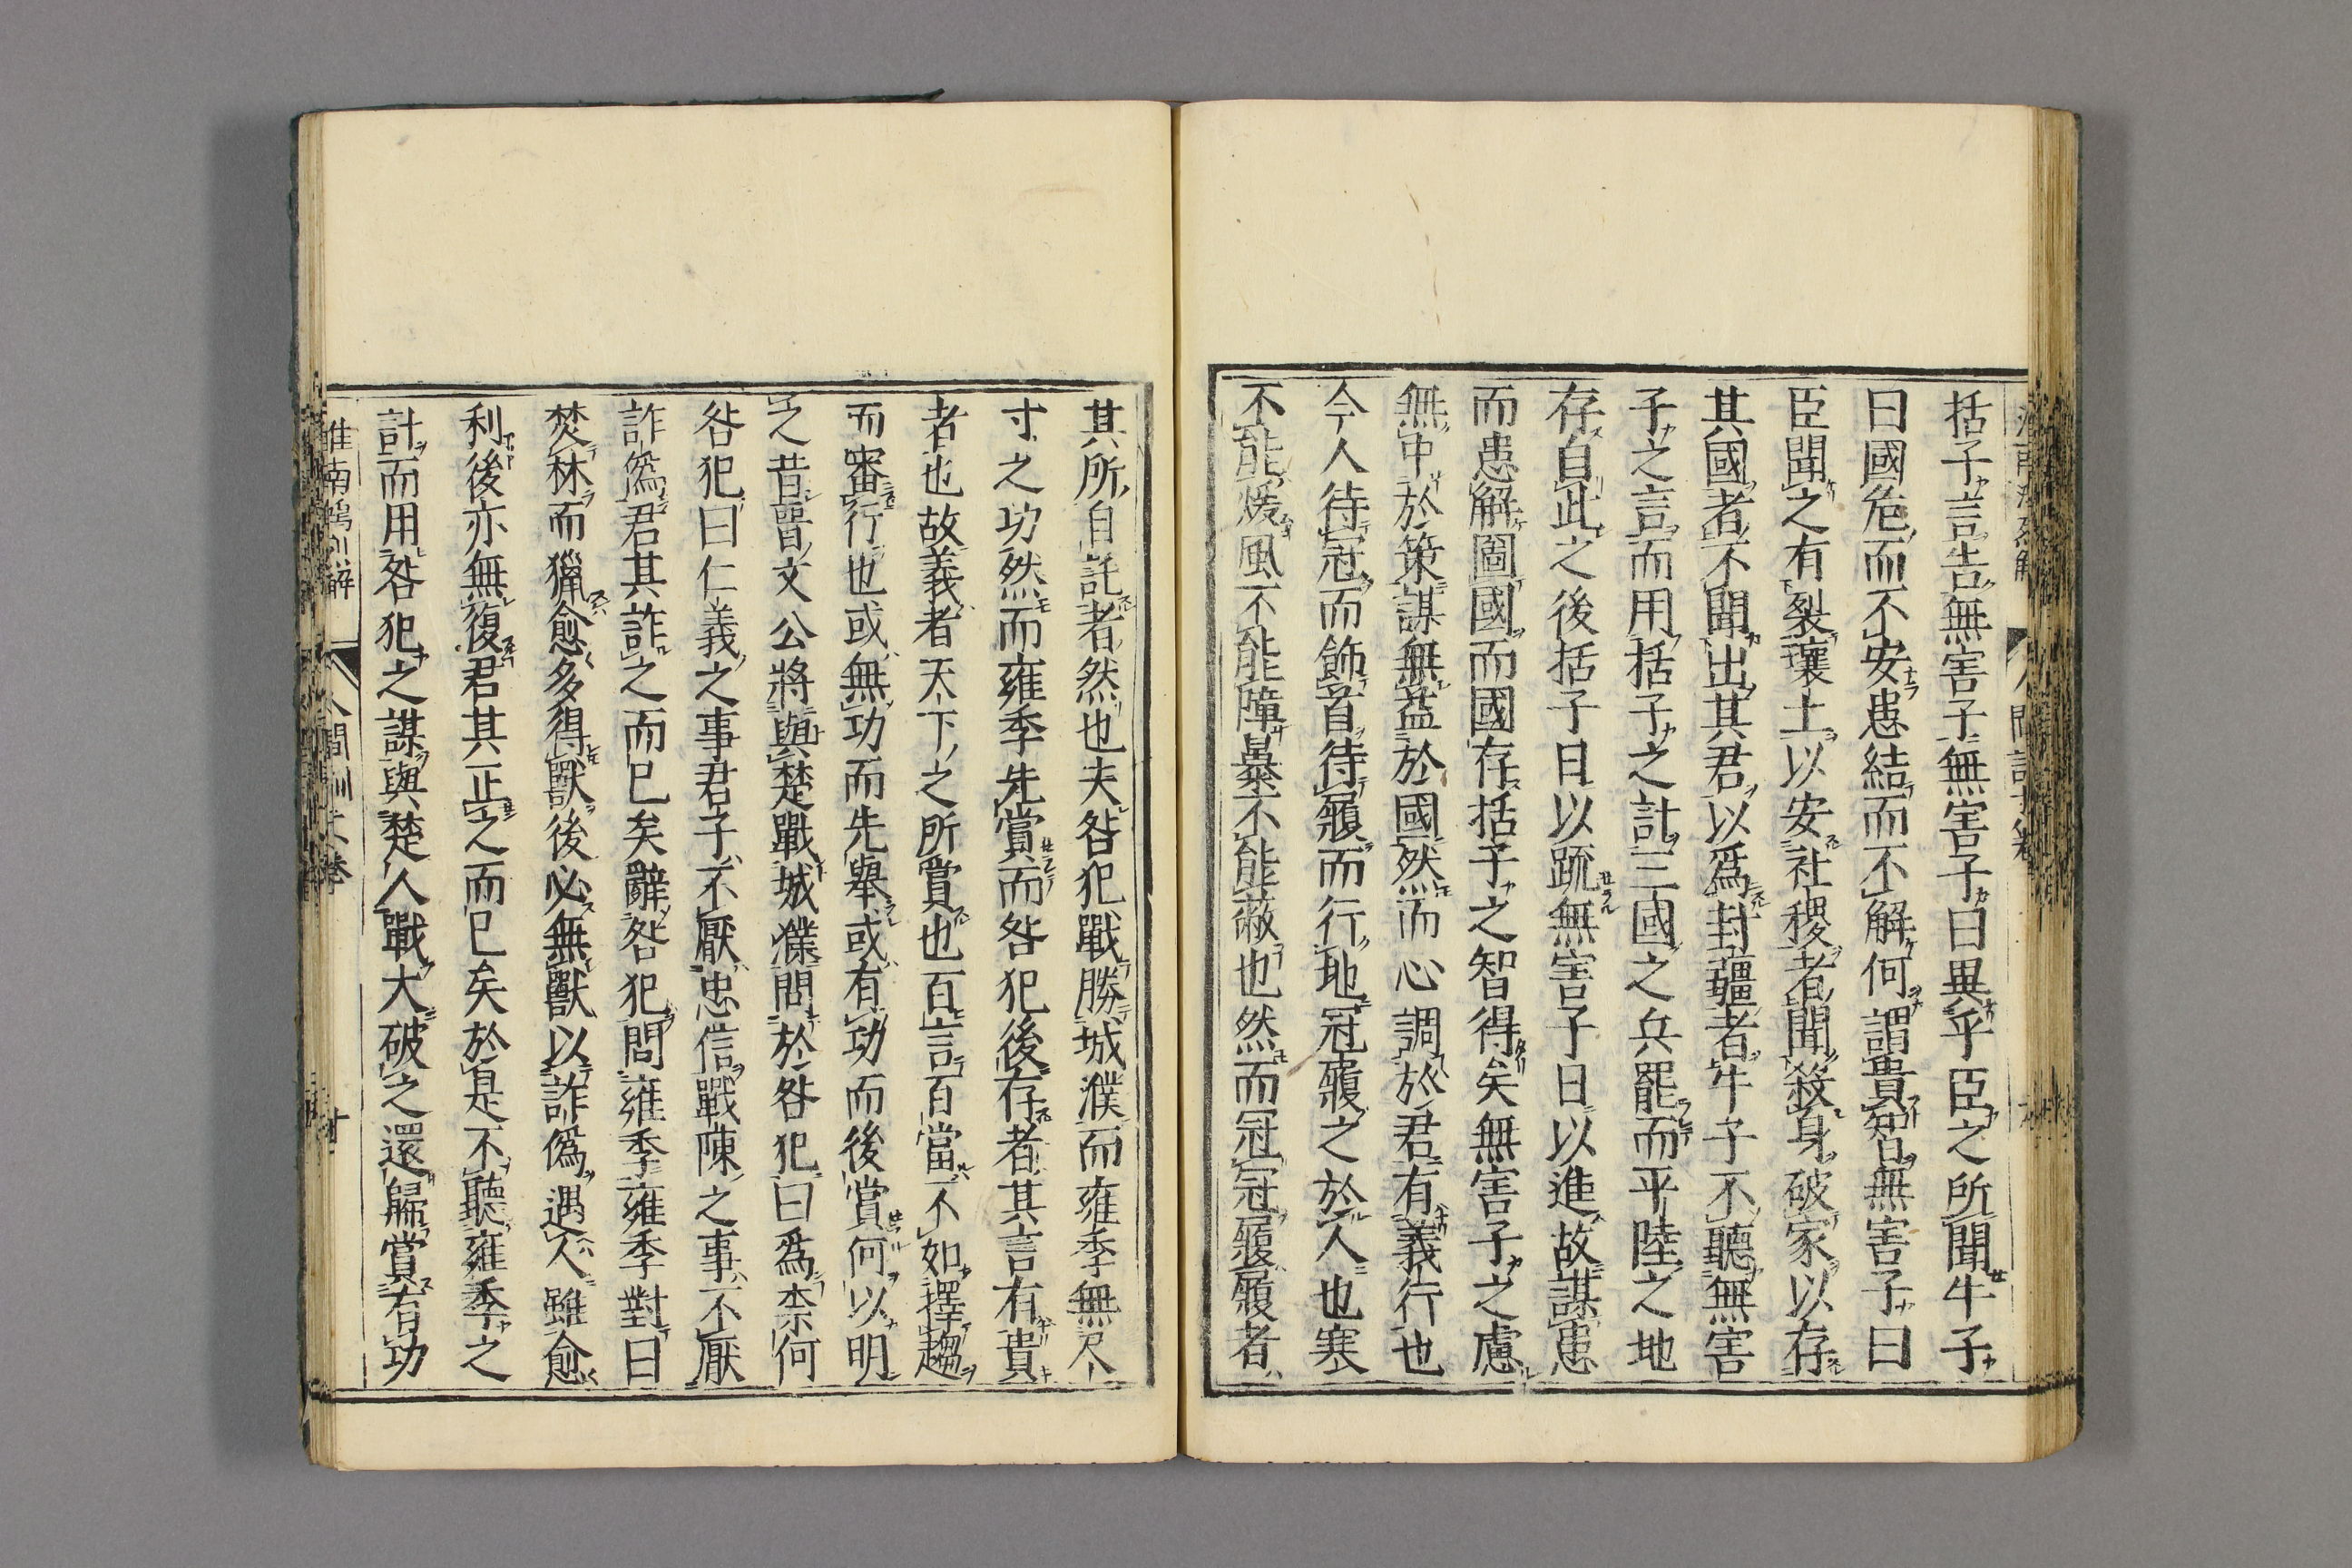 括子言告無害子無害子曰異乎臣之所聞牛子
曰國危而不安患結而不解何謂貴智無害子曰
臣聞之有裂壤土以安社稷者聞殺身破家以存
其國者不聞出其君以爲封疆者牛子不聽無害
子之言而用括子之計三國之兵罷而平陸之地
存自此之後括子日以疏無害子日以進故謀患
而患解圖國而國存括子之智得矣無害子之慮
無中於策謀無益於國然而心調於君有義行也
今人待冠而飾首待履而行地冠履之於人也寒
不能煖風不能障暴不能蔽也然而冠冠履履者
其所自託者然也夫咎犯戰勝城濮而雍季無尺
寸之功然而雍季先賞而咎犯後存者其言有貴
者也故義者天下之所賞也百言百當不如擇趨
而審行也或無功而先舉或有功而後賞何以明
之昔晉文公將與楚戰城濮問於咎犯曰爲柰何
咎犯曰仁義之事君子不厭忠信戰陳之事不厭
詐僞君其詐之而已矣辭咎犯問雍季雍季對曰
焚林而獵愈多得獸後必無獸以詐僞遇人雖愈
利後亦無復君其正之而已矣於是不聽雍季之
計而用咎犯之謀與楚人戰大破之還歸賞有功
淮南鴻烈解 人間訓 卷 十